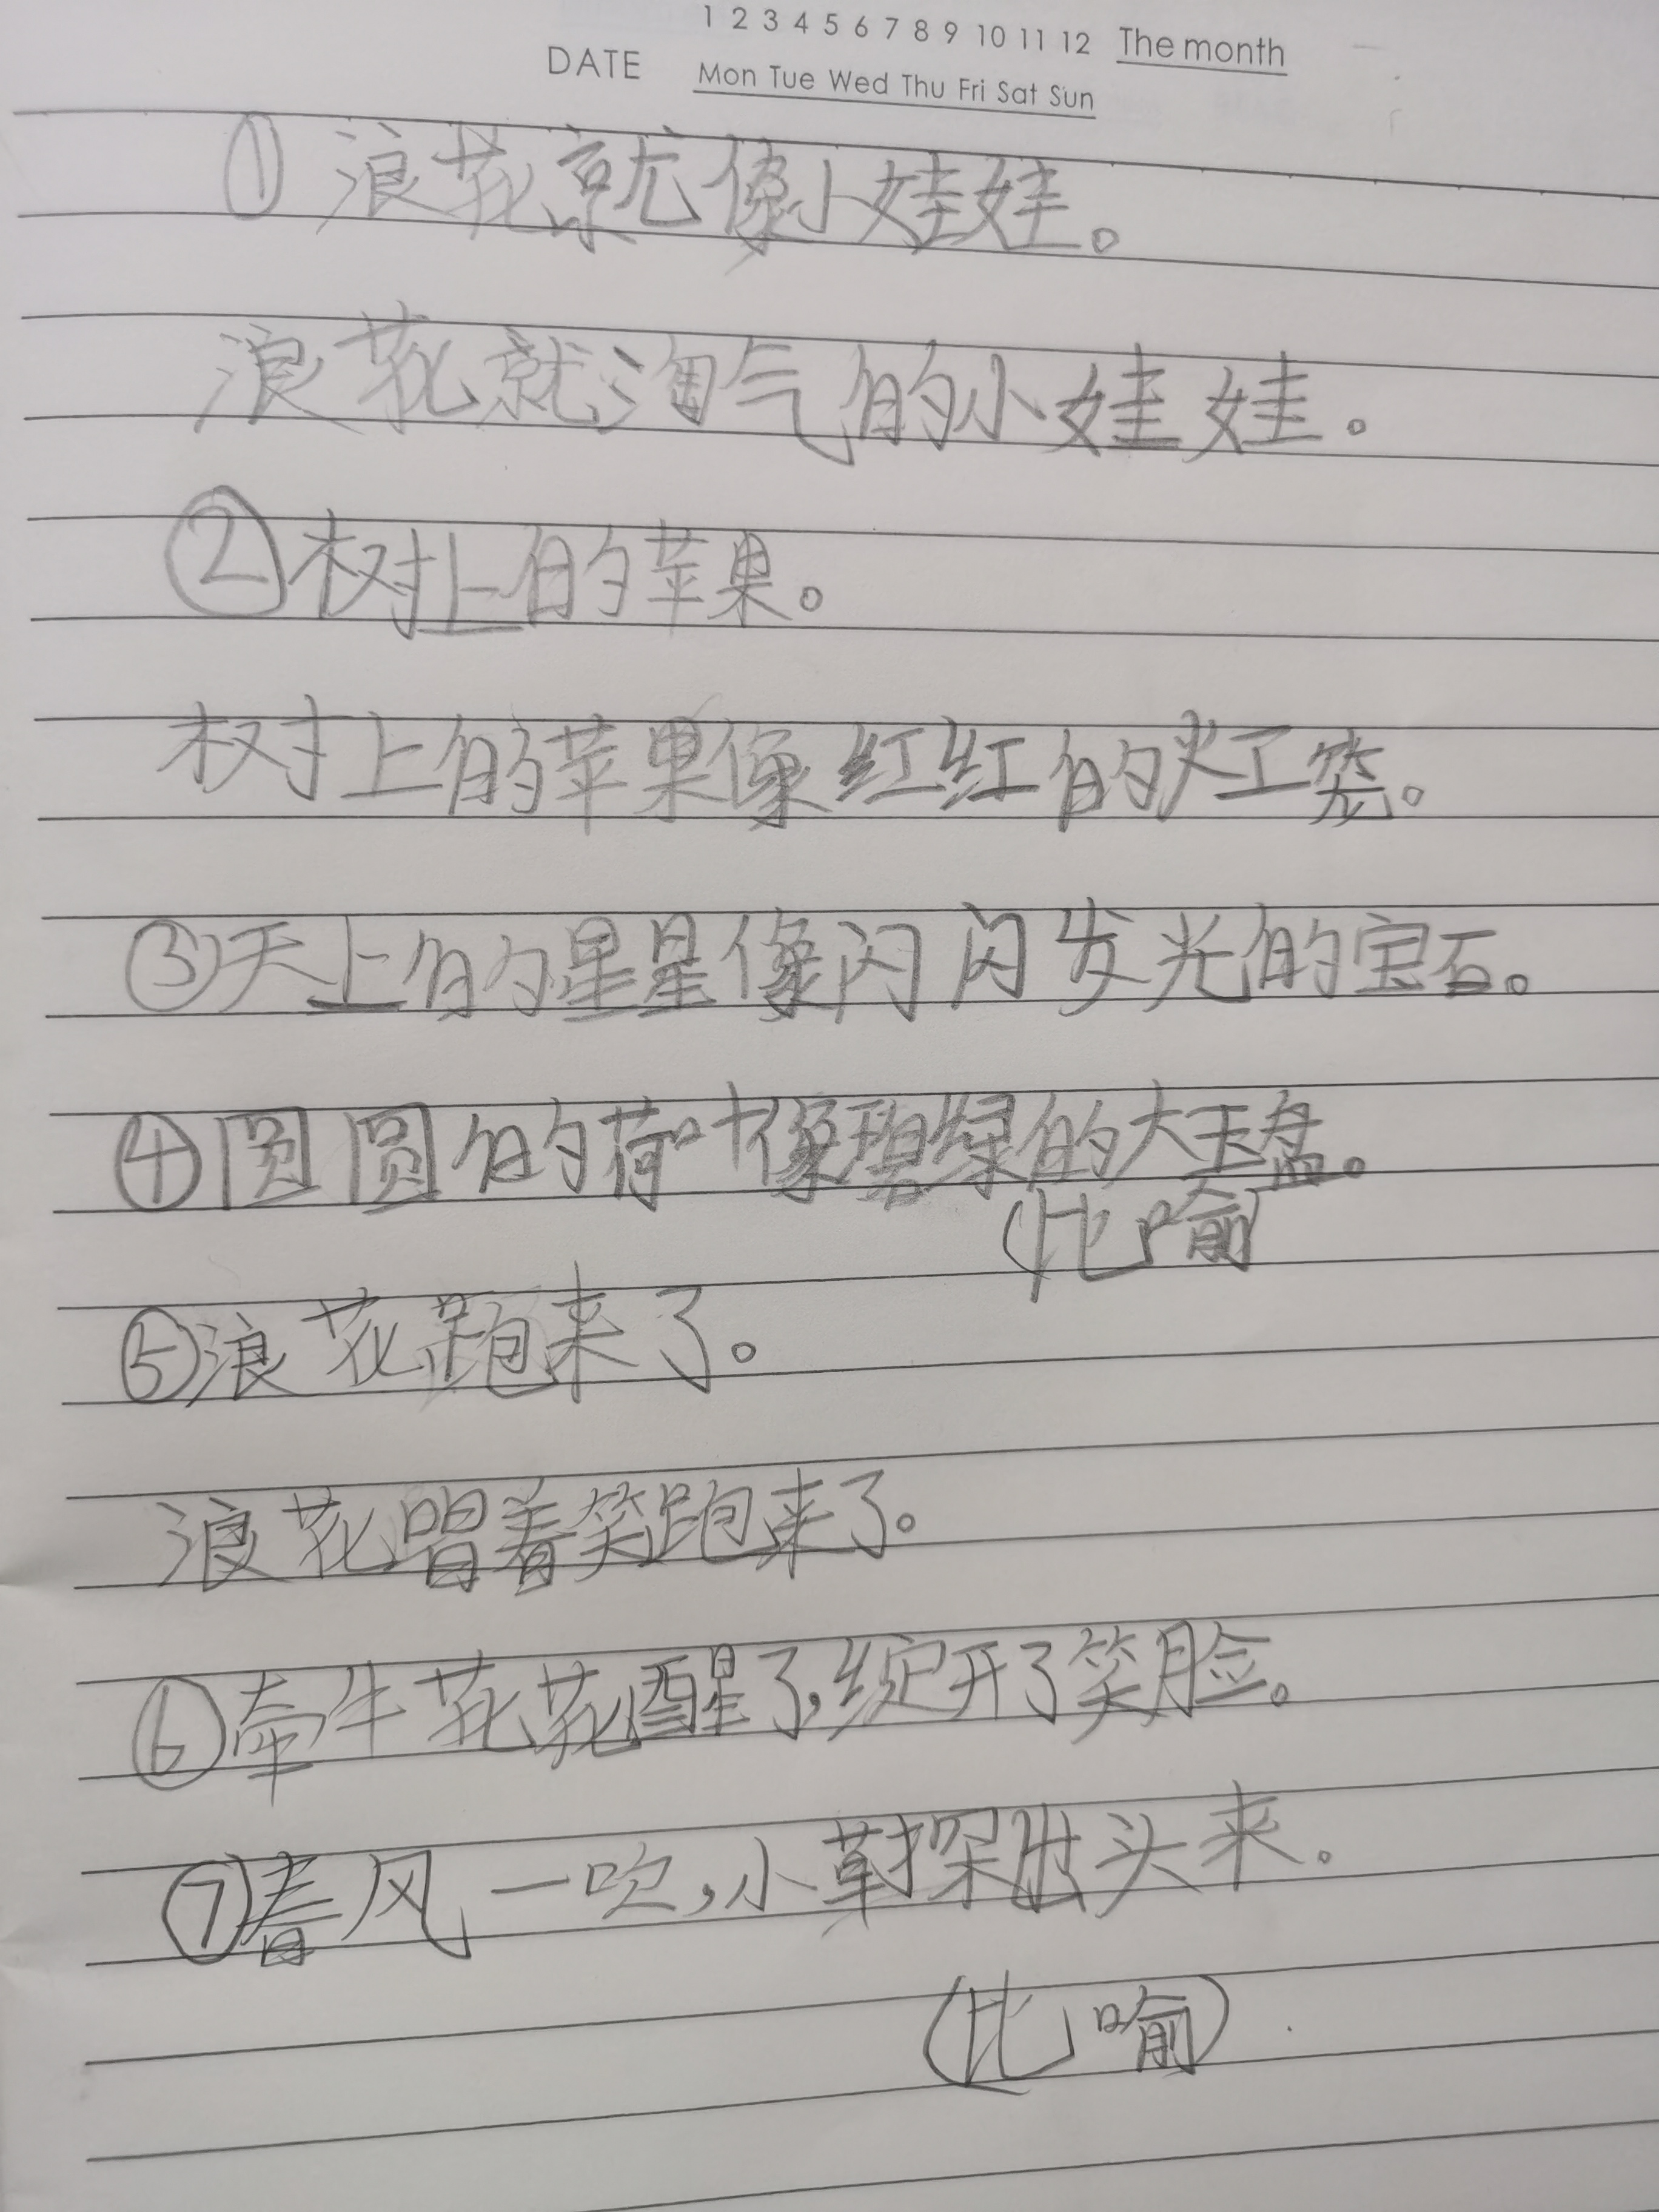 1 2 3 4 5 6 7 8 9 10 11 12 The month
DATE Mon Tue Wed Thu Fri Sat Sun
①浪花就像小娃娃。
浪花就淘气的小娃娃。
②树上的苹果。
树上的苹果像红红的灯笼。
③天上的星星像闪闪发光的宝石。
④圆圆的荷叶像碧绿的大玉盘。
(比喻
⑤浪花跑来了。
浪花唱着笑跑来了。
⑥牵牛花花醒了,绽开了笑脸。
⑦春风一吹,小草探出头来.
(比喻)